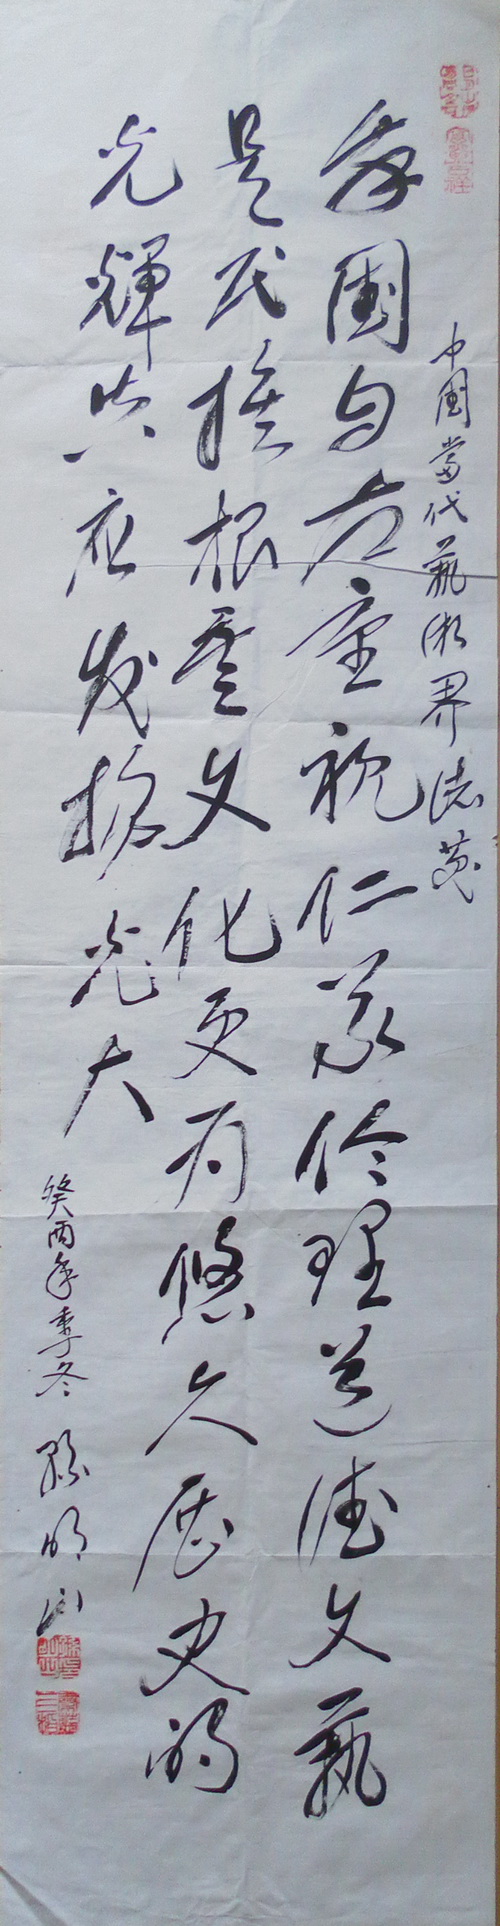 中國當代藝術界
我國自古重視仁義倫理道德文藝
是民族根基文化更有悠久歷史的
光輝共应发揚光大
癸酉年季冬 孫明山